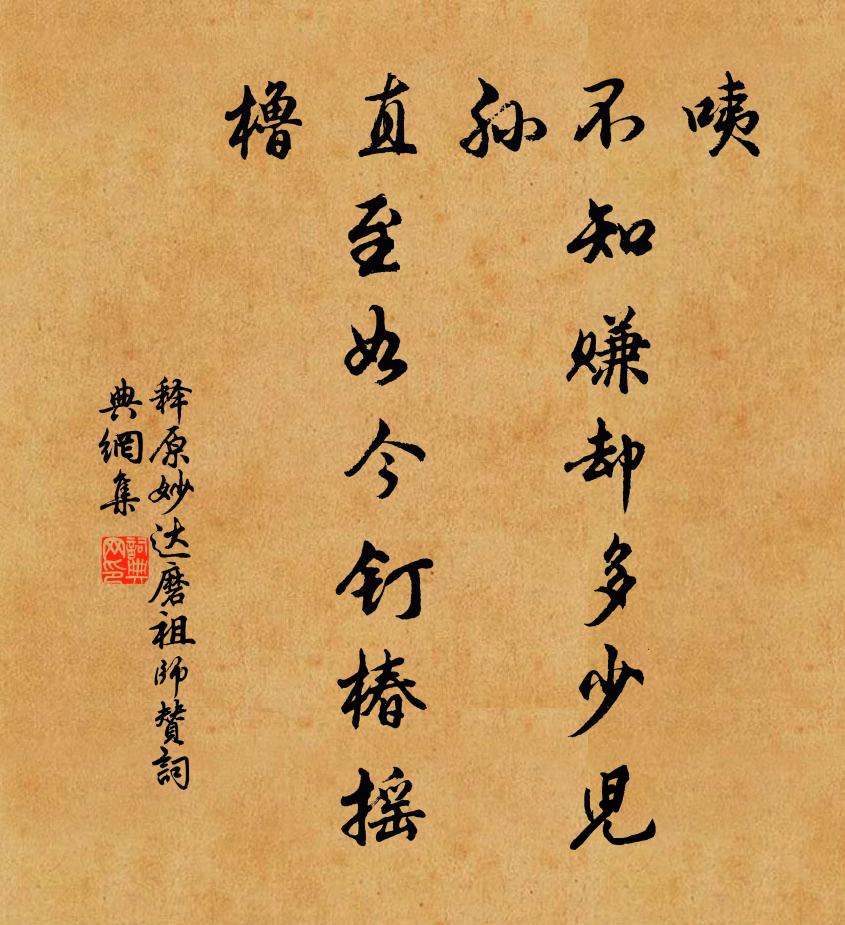 咦
不知赚却多少児
孙
直至如今钉椿摇
橹
释原妙达磨祖師赞詞
典網集
詞典
网印